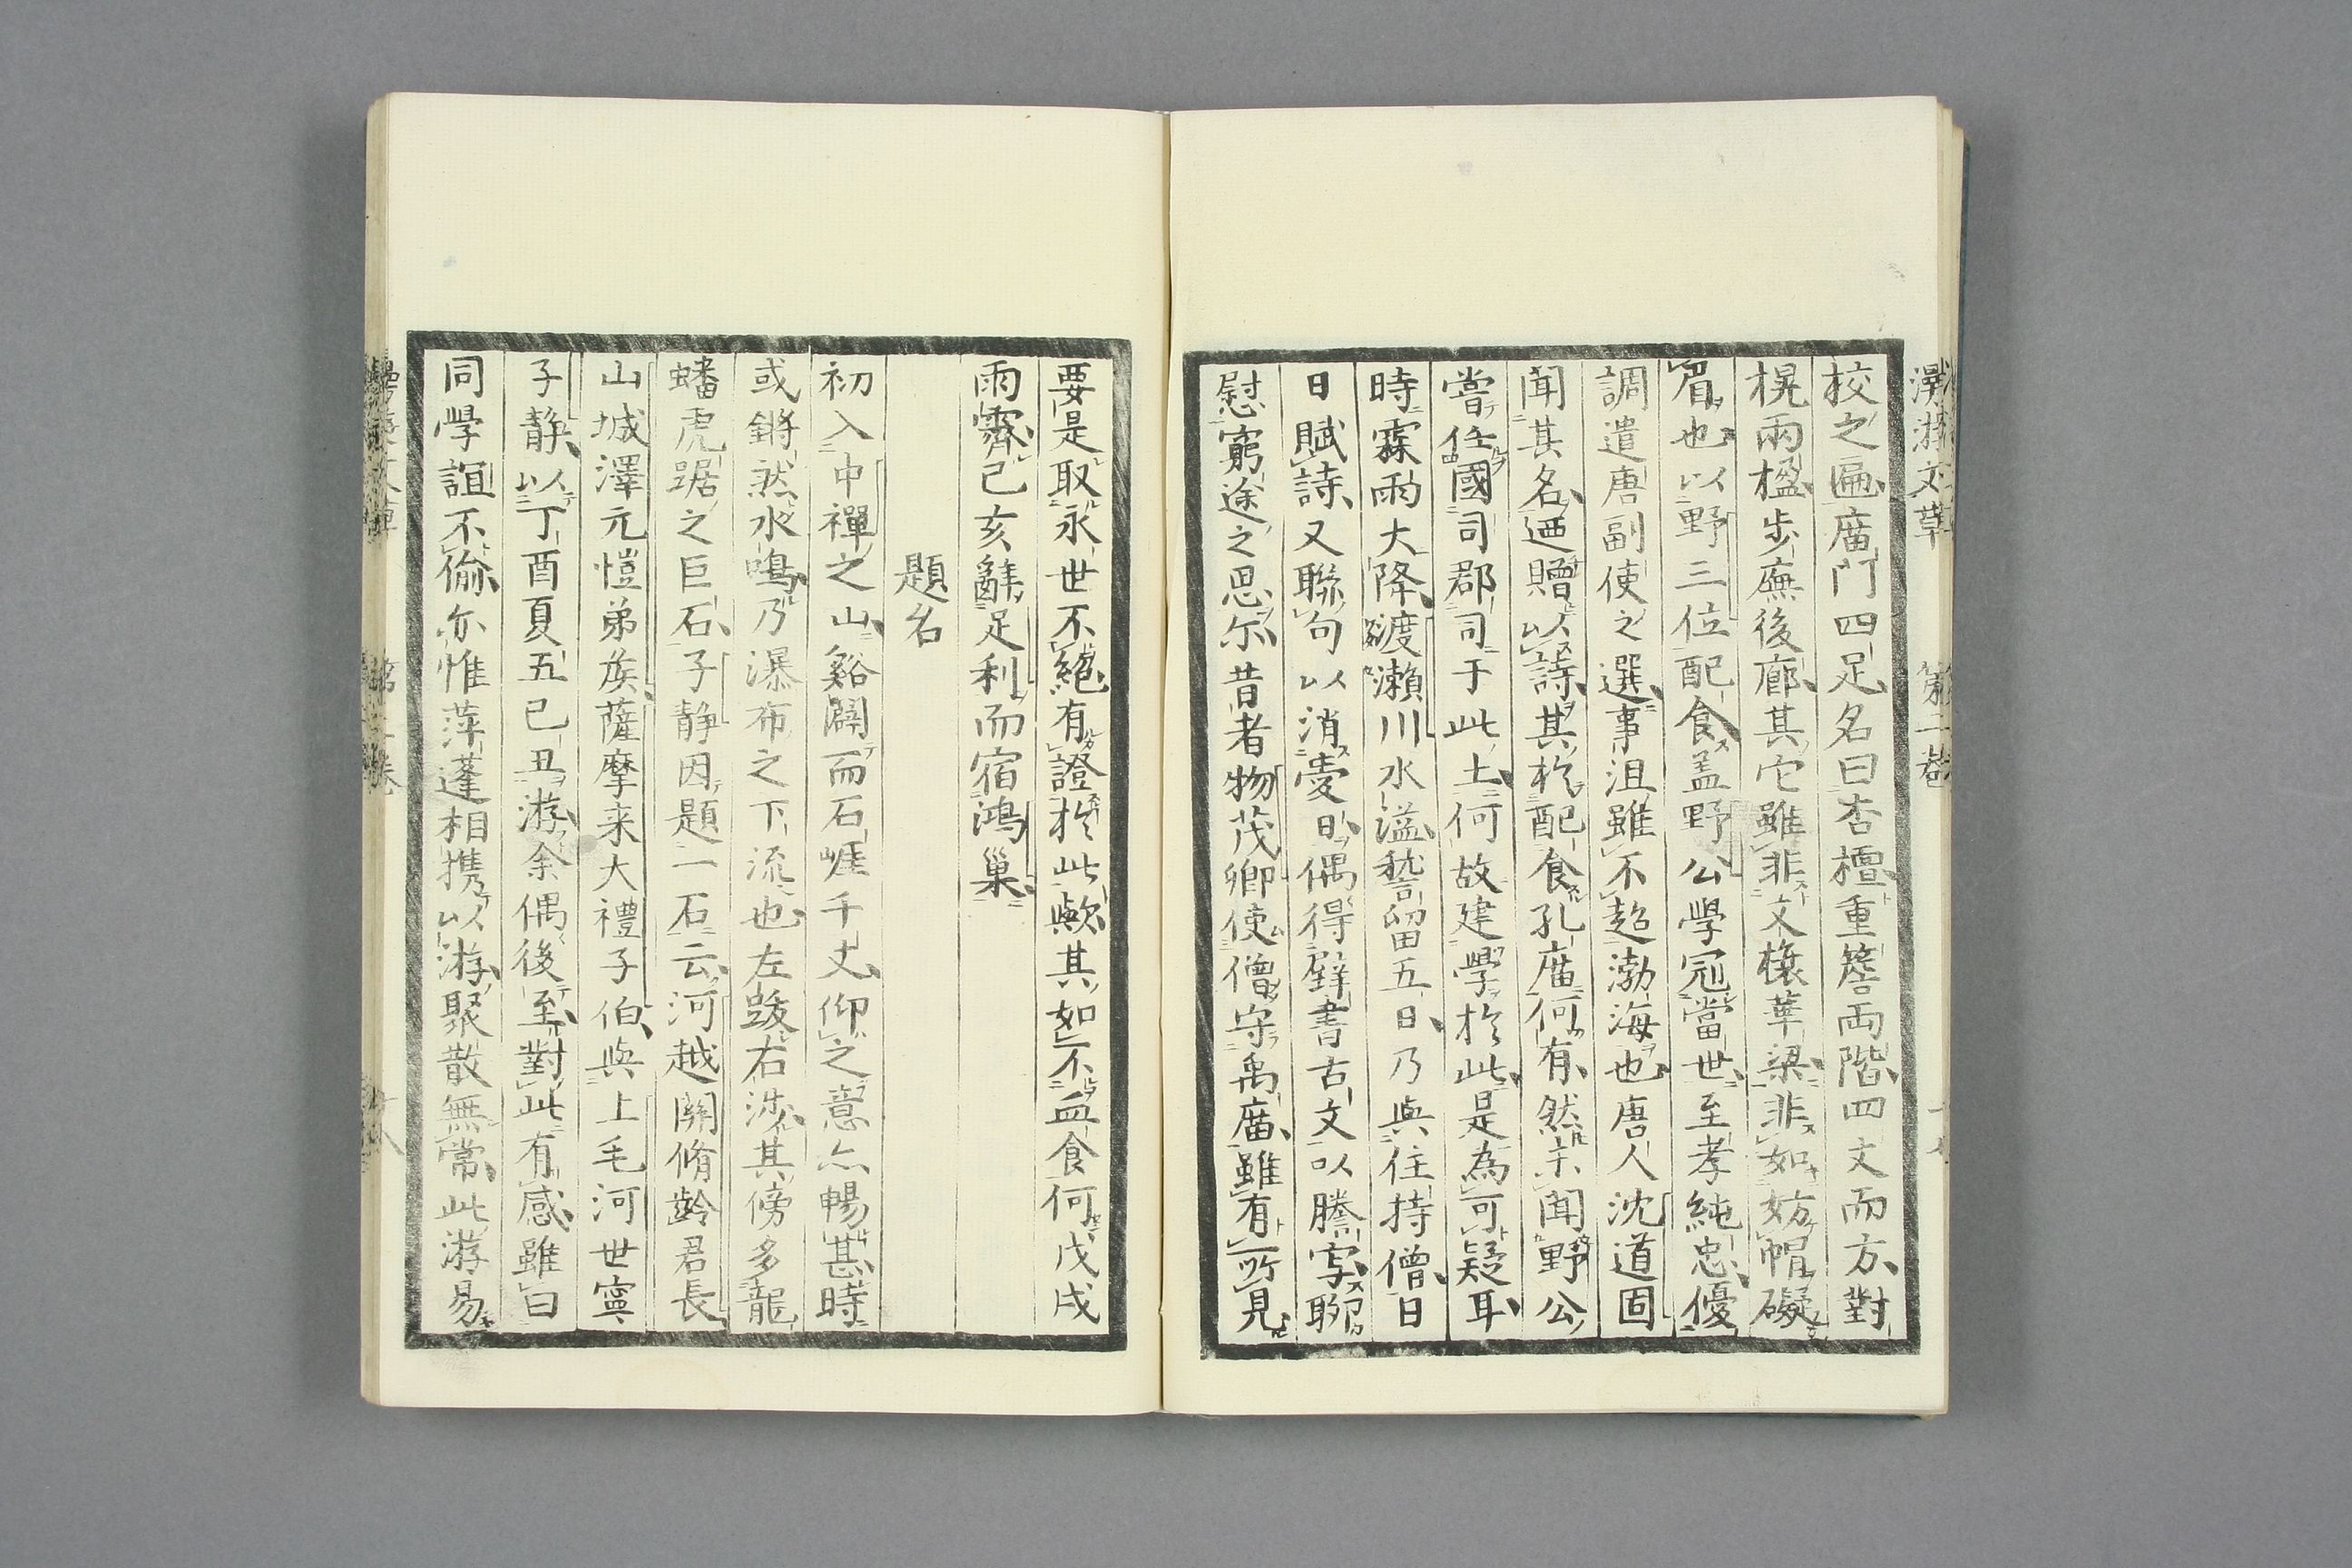 校之匾廣門四足名曰杏檀重簷両階四文而方對
榥兩楹步廡後廊其它雖非文榱華梁非如妨帽礙
眉也以野三位配食盖野公學冠當世至孝純忠優
調遣唐副使之選事沮雖不超渤海也唐人沈道固
聞其名迺贈以詩其於配食孔庿何有然未聞野公
嘗任國司郡司于此土何故建學於此是為可疑耳
時霖雨大降渡瀨川水溢嵆留五日乃與住持僧日
日賦詩又聯句以消憂日偶得壁書古文以騰寫聊
慰窮途之思尓昔者物茂卿使僧守禹庿雖有所見
要是取永世不絕有證於此歟其如不血食何戊戌
雨霽己亥辭足利而宿鴻巢
題名
初入中禪之山谿闢而石崕千丈仰之意亦暢甚時
或鏘然水鳴乃瀑布之下流也左跋右涉其傍多龍
蟠虎踞之巨石子静因題一石云河越關脩齡君長
山城澤元愷弟矦薩摩来大禮子伯與上毛河世寧
子静以丁酉夏五已丑游余偶後至對此有感雖曰
同學誼不偷亦惟萍蓬相携以游聚散無常此游易
漫游文草 第二卷